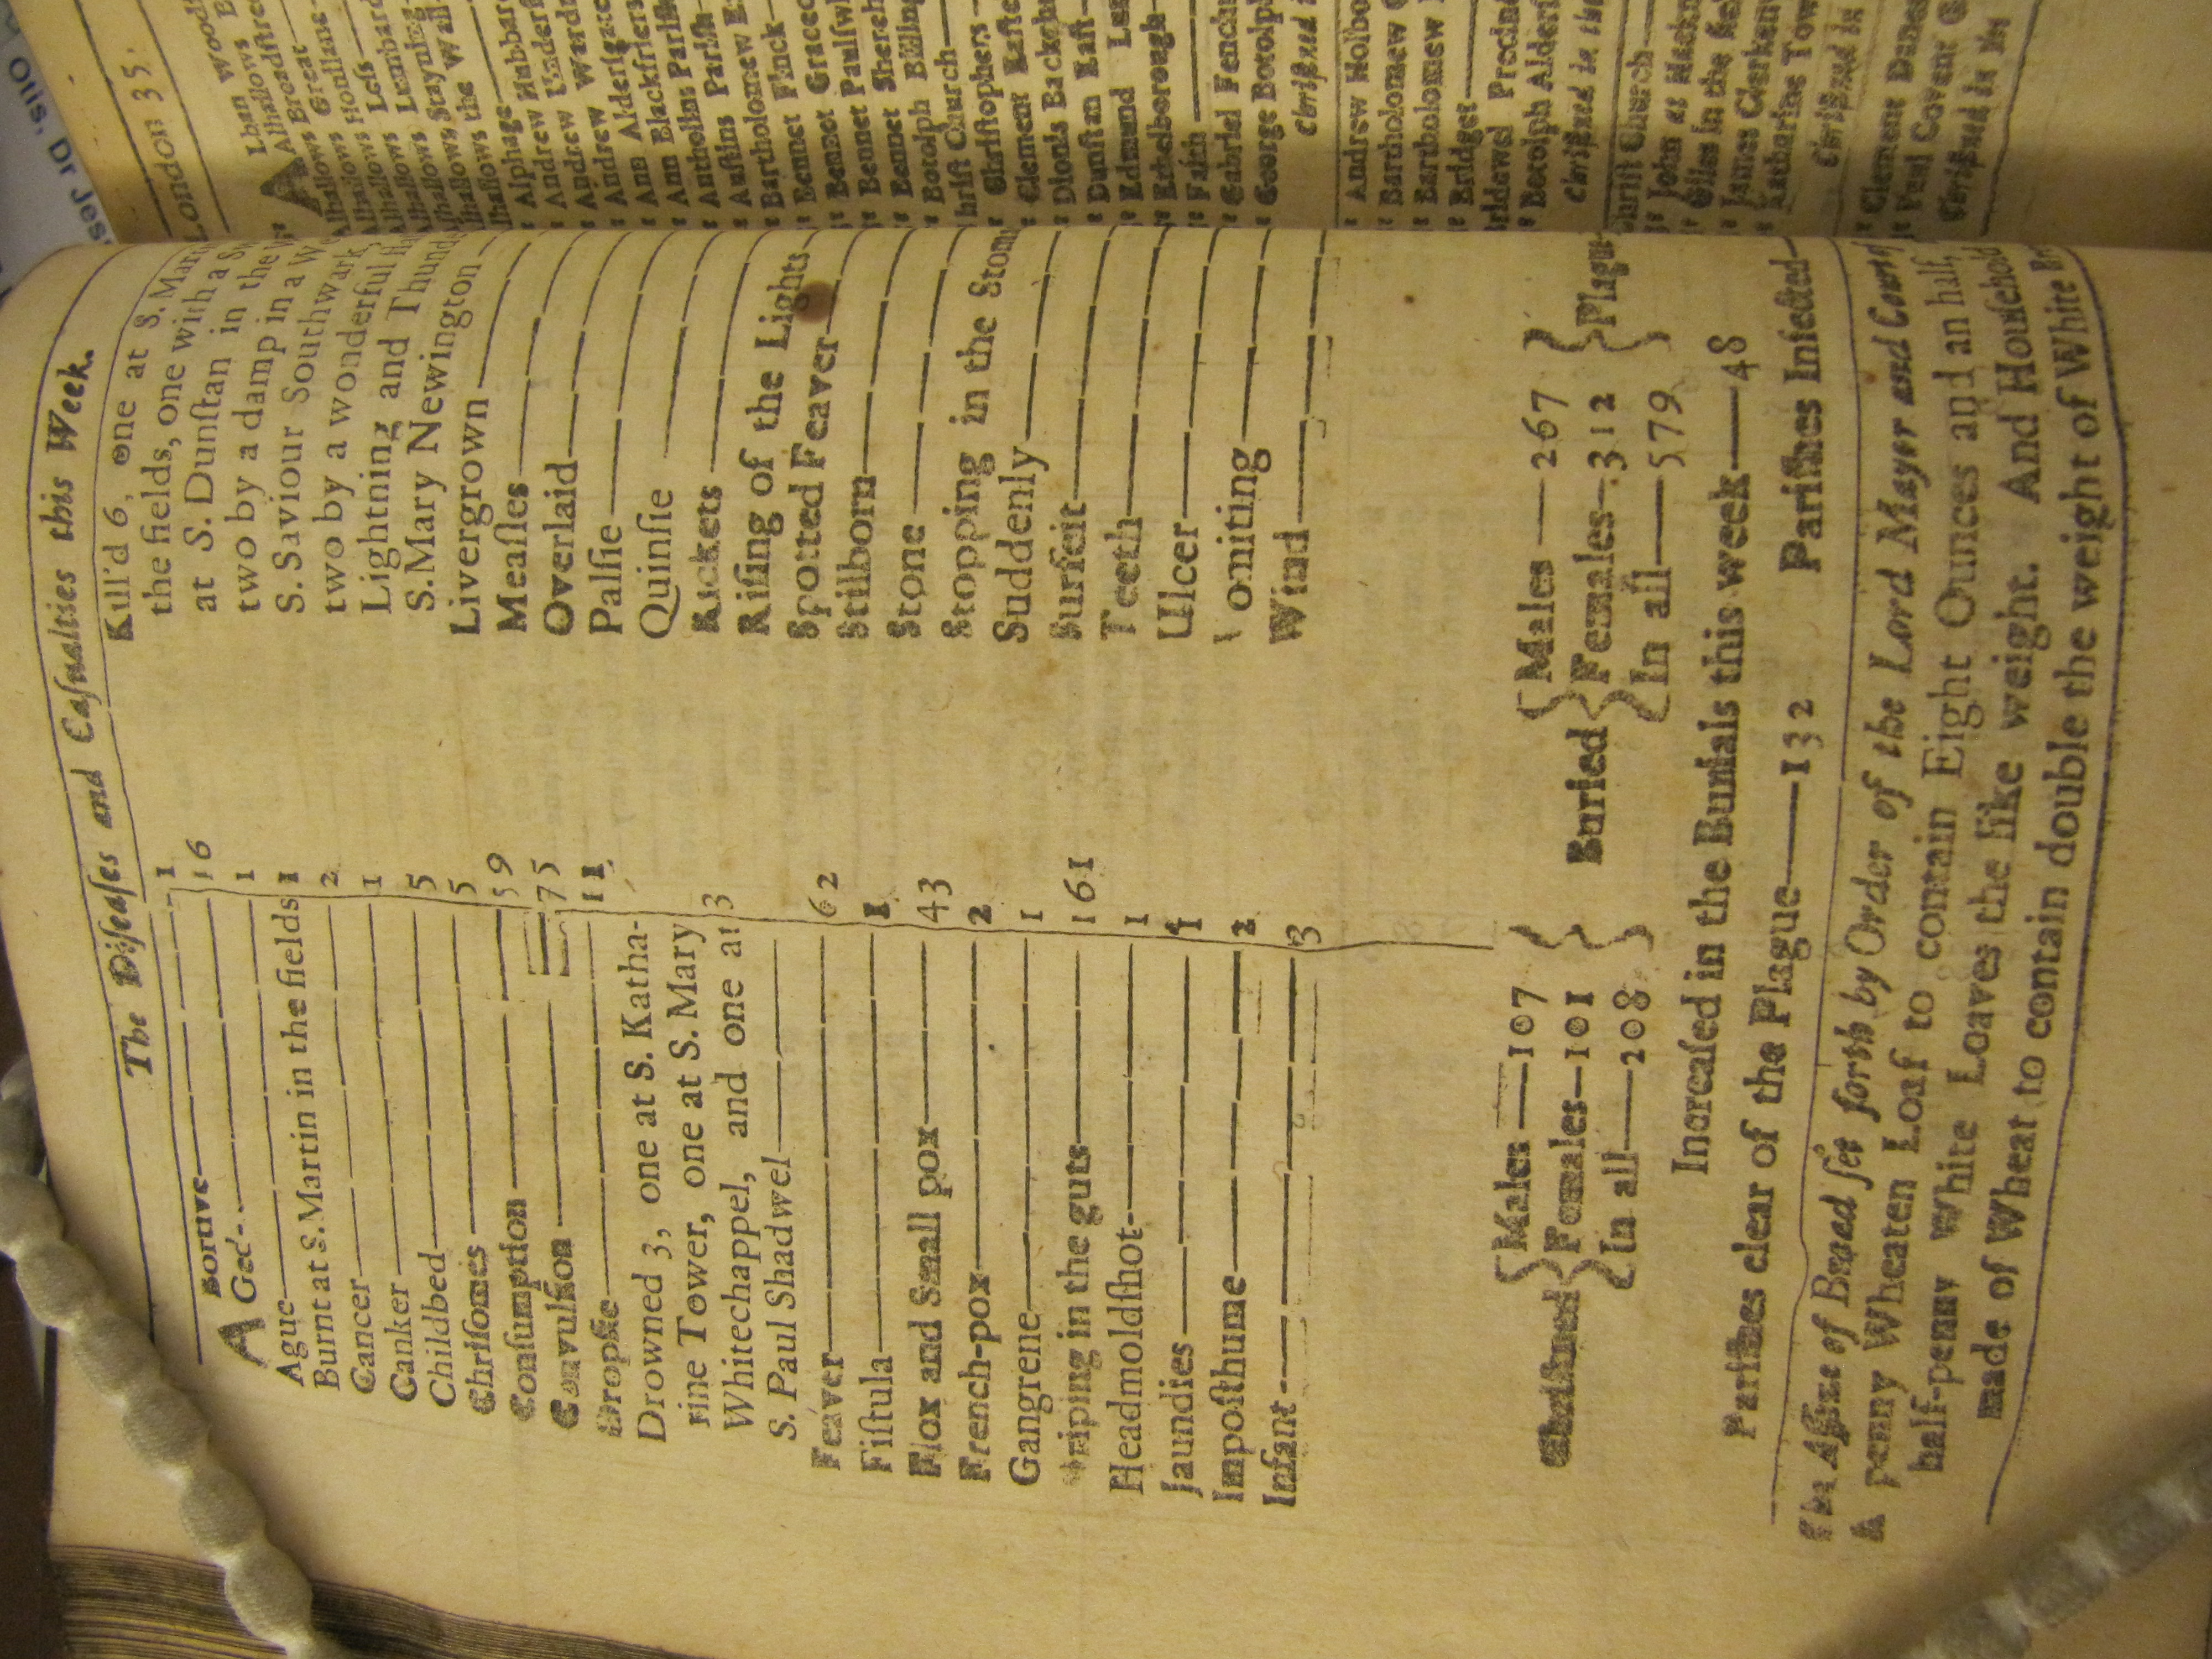 The Diſeaſes and Caſualties this Week.
Abortive 1
Aged 16
Ague 1
Burnt at S. Martin in the fields 1
Cancer 2
Canker 1
Childbed 5
Chriſomes 5
Conſumption 59
Convulſion 75
Dropſie 11
Drowned 3, one at S. Katha-
rine Tower, one at S. Mary
Whitechappel, and one at
S. Paul Shadwel 3
Feaver 62
Fiſtula 1
Flox and Small pox 43
French-pox 2
Gangrene 1
Griping in the guts 161
Headmoldſhot 1
Jaundies
Impoſthume 2
Infant 3
Kill'd 6, one at S. Mar
the fields, one with a
at S. Dunſtan in the
two by a damp in a
S. Saviour Southwark
two by a wonderful
Lightning and Thund
S. Mary Newington
Livergrown
Meaſles
Overlaid
Palſie
Quinſie
Rickets
Riſing of the Lights
Spotted Feaver
Stilborn
Stone
Stopping in the Stom
Suddenly
Surfeit
Teeth
Ulcer
Vomiting
Wind
Chriſtned { Males 107 Females 101 In all 208 }
Buried { Males 267 Females 312 In all 579 }
Plague
Increaſed in the Burials this week 48
Pariſhes clear of the Plague 132 Pariſhes Infected
The Aſſize of Bread ſet forth by Order of the Lord Mayor and Court of
A penny Wheaten Loaf to contain Eight Ounces and an half,
half-penny White Loaves the like weight. And Houſehold
made of Wheat to contain double the weight of White
Otis, Dr Jes
London 35.
Lban Wood
Alhallows
Alhallows Great
Alhallows Honilane
Alhallows Leſs
Alhallows Lumbard
Alhallows Stayning
Alhallows the Wall
Alphage
Andrew Hubbar
Andrew Underſ
Andrew Wardr
Ann Alderſgate
Ann Blackfriers
Antholins Pariſh
Auſtins Pariſh
Bartholomew E
Bennet Finck
Bennet Gracec
Bennet Paulſwh
Bennet Sherch
Botolph Billing
Chriſt Church
Chriſtophers
Clement Eaſtc
Dionis Backch
Dunſtan Eaſt
Edmund
Ethelborough
Faith
Gabriel Fenchu
George Botolph
Andrew Holbo
Bartholomew
Bartholomew
Bridget
Bridewel Precin
Botolph Alderſ
Chriſtned in the
Chriſt Church
John at Hackn
Giles in the
James Clerken
Katharine Tow
Chriſtned in
Clement Danes
Paul Covent
Chriſtned in